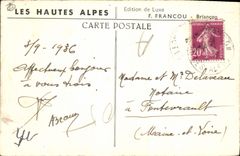 LES HAUTES ALPES
Edition de Luxe
F. FRANCOU - Briançon
CARTE POSTALE
3/9 - 1936
Affectueux bonjour
à vous trois
Madame et Mr Delaveau
Notaire
à Fontevrault
(Maine-et-Loire)
20